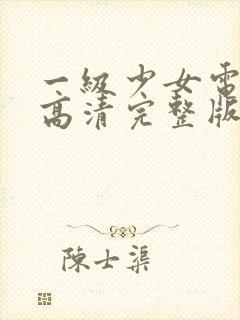 一级少女電
高清完整版
陳士渠